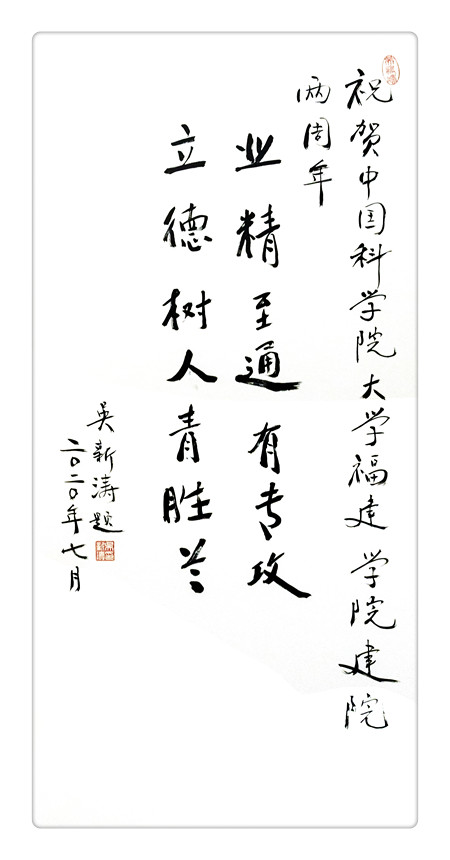 祝贺中国科学院大学福建学院建院
两周年
业精至通有专攻
立德树人青胜兰
吴新涛题
二〇二〇年七月